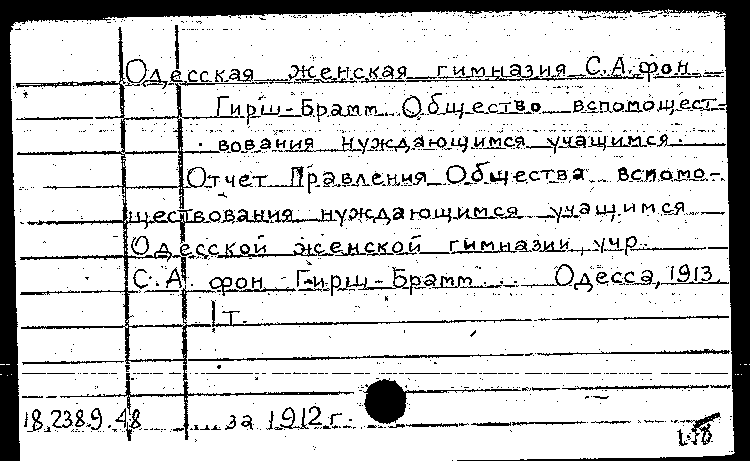 Одесская женская гимназия С.А. фон
Гирш-Брамм. Общество вспомощест-
вования нуждающимся учащимся.
Отчет Правления Общества вспомо-
ществования нуждающимся учащимся
Одесской женской гимназии, учр.
С.А. фон Гирш-Брамм... Одесса, 1913.
1 т.
18.2389.48 ...за 1912 г.